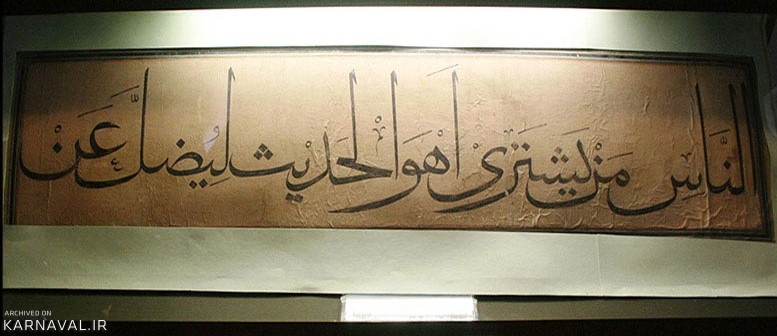 النَّاسِ مَنْ يَشْتَرِي لَهْوَ الْحَدِيثِ لِيُضِلَّ عَنْ
ARCHIVED ON
KARNAVAL.IR